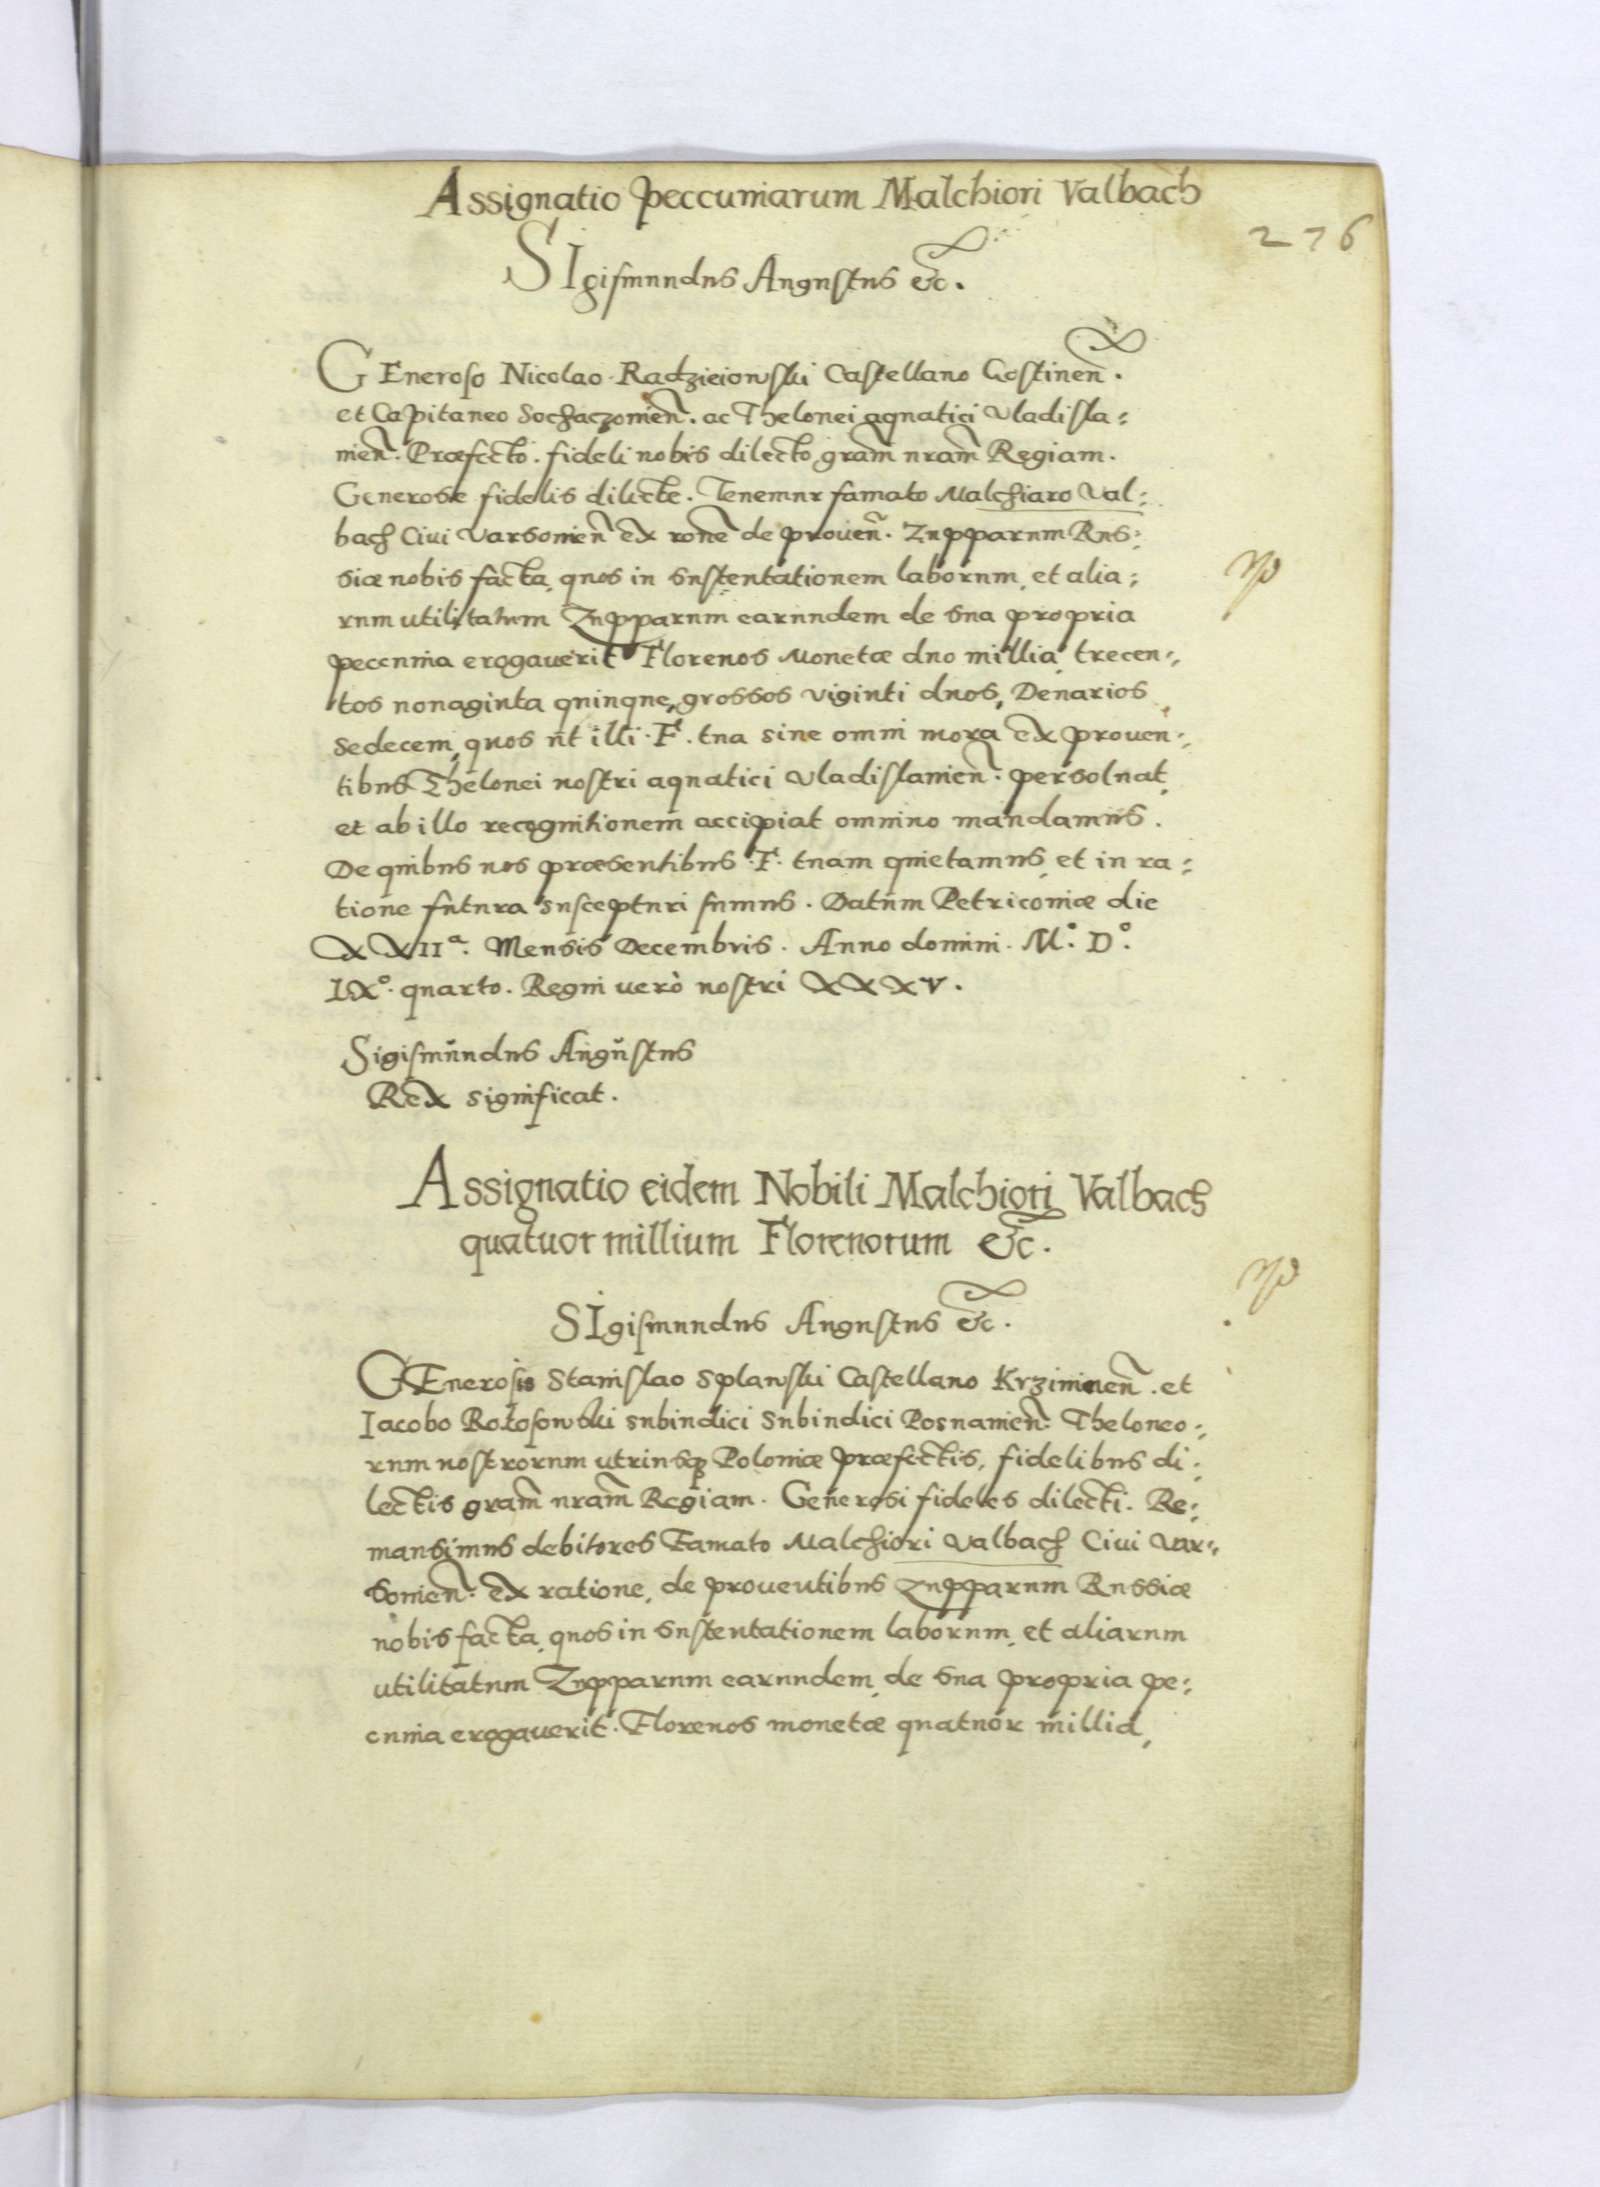 Assignatio peccuniarum Malchiori Valbach
276
SIgismundus Augustus &c.
GEneroso Nicolao Radzieiowski Castellano Gostinen̄.
et Capitaneo Sochaczouien̄. ac Thelonei aquatici Vladisla-
uien̄. Præfecto. fideli nobis dilecto, gram̄ nram̄ Regiam.
Generose fidelis dilecte. Tenemur famato Malchiaro Val-
bach Ciui Varsouien̄ ex rone̅ de prouen̄. Zupparum Rus-
siæ nobis facta, quos in sustentationem laborum, et alia-
rum utilitatum Zupparum earundem de sua propria
pecunia erogauerit Florenos Monetæ duo millia, trecen-
tos nonaginta quinque, grossos viginti duos, Denarios
sedecem, quos ut illi F. tua sine omni mora ex prouen-
tibus Thelonei nostri aquatici Vladislauien̄. persoluat,
et ab illo recognitionem accipiat omnino mandamus.
De quibus nos præsentibus F. tuam quietamus, et in ra-
tione futura suscepturi sumus. Datum Petricouiæ die
XXIIa. Mensis Decembris. Anno domini. Mo. Do.
LXo. quarto. Regni uerò nostri XXXV.
Sigismundus Augustus
Rex significat.
Assignatio eidem Nobili Malchiori Valbach
quatuor millium Florenorum &c.
SIgismundus Augustus &c.
GEnerosis Stanislao Splawski Castellano Krziwinen̄. et
Iacobo Rokosowski subiudici subiudici Posnanien̄. Theloneo-
rum nostrorum utriusq3 Poloniæ præfectis, fidelibus di-
lectis gram̄ nram̄ Regiam. Generosi fideles dilecti. Re-
mansimus debitores Famato Malchiori Valbach Ciui Var-
souien̄. ex ratione, de prouentibus Zupparum Russiæ
nobis facta, quos in sustentationem laborum, et aliarum
utilitatum Zupparum earundem, de sua propria pe-
cunia erogauerit. Florenos monetæ quatuor millia,